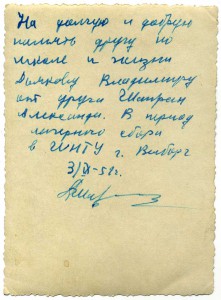 На долгую и добрую
память другу по
школе и жизни
Дьякову Владимиру
от друга Шаприн
Александра. В период
лагерного сбора
в г. Выборг
3/IX-51г.